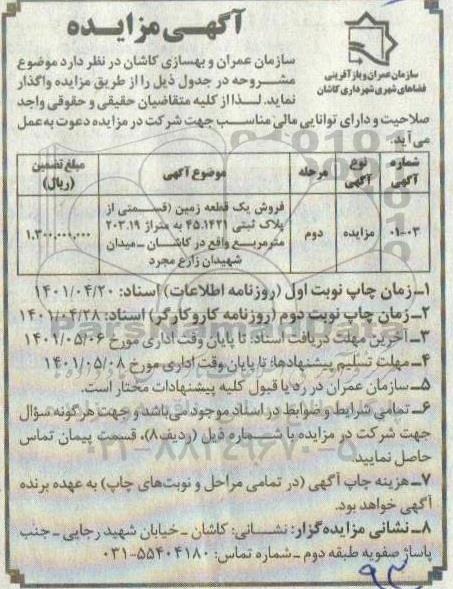 آگهی مزایده
سازمان عمران و بازآفرینی
فضاهای شهری شهرداری کاشان
سازمان عمران و بهسازی کاشان در نظر دارد موضوع
مشروحه در جدول ذیل را از طریق مزایده واگذار
نماید. لذا از کلیه متقاضیان حقیقی و حقوقی واجد
صلاحیت و دارای توانایی مالی مناسب جهت شرکت در مزایده دعوت به عمل
می آید.
شماره آگهی | نوع آگهی | مرحله | موضوع آگهی | مبلغ تضمین (ریال)
۰۱-۰۳ | مزایده | دوم | فروش یک قطعه زمین (قسمتی از پلاک ثبتی ۴۵.۱۴۲۱ به متراژ ۲۰۳.۱۹ مترمربع واقع در کاشان ـ میدان شهیدان زارع مجرد | ۱.۳۰۰.۰۰۰.۰۰۰
۱ـ زمان چاپ نوبت اول (روزنامه اطلاعات) اسناد: ۱۴۰۱/۰۴/۲۰
۲ـ زمان چاپ نوبت دوم (روزنامه کاروکارگر) اسناد: ۱۴۰۱/۰۴/۲۸
۳ـ آخرین مهلت دریافت اسناد: تا پایان وقت اداری مورخ ۱۴۰۱/۰۵/۰۶
۴ـ مهلت تسلیم پیشنهادها: تا پایان وقت اداری مورخ ۱۴۰۱/۰۵/۰۸
۵ـ سازمان عمران در رد یا قبول کلیه پیشنهادات مختار است.
۶ـ تمامی شرایط و ضوابط در اسناد موجود می‌باشد و جهت هرگونه سؤال
جهت شرکت در مزایده با شماره ذیل (ردیف۸)، قسمت پیمان تماس
حاصل نمایید.
۷ـ هزینه چاپ آگهی (در تمامی مراحل و نوبت‌های چاپ) به عهده برنده
آگهی خواهد بود.
۸ـ نشانی مزایده‌گزار: نشانی: کاشان ـ خیابان شهید رجایی ـ جنب
پاساژ صفویه طبقه دوم ـ شماره تماس: ۵۵۴۰۴۱۸۰-۰۳۱
ParsNamadData
۰۲۱-۸۸۳۴۹۶۷۰-۵